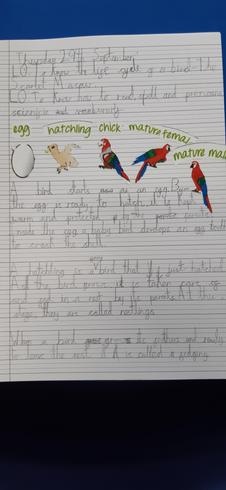 Thursday 29th September
LO To know the life cycle of a bird. The
Scarlet Macaw
LO To know how to read, spell and pronounce
scientific vocabulary
egg hatchling chick mature female mature male
A bird starts as an egg.
the egg is ready to hatch it is kept
warm and protected by the parents
inside the egg a baby bird develops an egg tooth
to crack the shell.
A hatchling is a bird that just hatched
As the bird grows it is taken care of
and in a nest by its parents At this
stage they are called nestlings
When a bird grows its feathers and ready
to leave the nest it is called a fledgling.